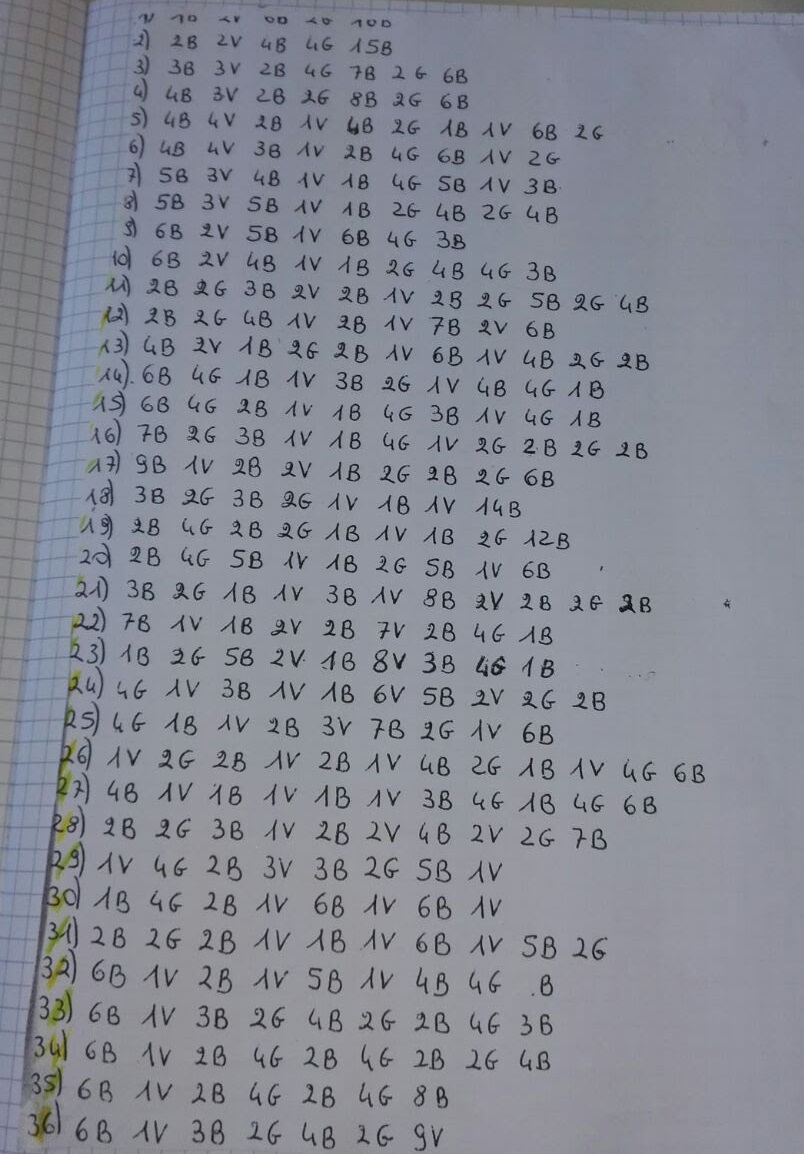 2) 2B 2V 4B 4G 15B
3) 3B 3V 2B 4G 7B 2G 6B
4) 4B 3V 2B 2G 8B 2G 6B
5) 4B 4V 2B 1V 4B 2G 1B 1V 6B 2G
6) 4B 4V 3B 1V 2B 4G 6B 1V 2G
7) 5B 3V 4B 1V 1B 4G 5B 1V 3B
8) 5B 3V 5B 1V 1B 2G 4B 2G 4B
9) 6B 2V 5B 1V 6B 4G 3B
10) 6B 2V 4B 1V 1B 2G 4B 4G 3B
11) 2B 2G 3B 2V 2B 1V 2B 2G 5B 2G 4B
12) 2B 2G 4B 1V 2B 1V 7B 2V 6B
13) 4B 2V 1B 2G 2B 1V 6B 1V 4B 2G 2B
14) 6B 4G 1B 1V 3B 2G 1V 4B 4G 1B
15) 6B 4G 2B 1V 1B 4G 3B 1V 4G 1B
16) 7B 2G 3B 1V 1B 4G 1V 2G 2B 2G 2B
17) 9B 1V 2B 2V 1B 2G 2B 2G 6B
18) 3B 2G 3B 2G 1V 1B 1V 14B
19) 2B 4G 2B 2G 1B 1V 1B 2G 12B
20) 2B 4G 5B 1V 1B 2G 5B 1V 6B
21) 3B 2G 1B 1V 3B 1V 8B 2V 2B 2G 2B
22) 7B 1V 1B 2V 2B 7V 2B 4G 1B
23) 1B 2G 5B 2V 1B 8V 3B 4G 1B
24) 4G 1V 3B 1V 1B 6V 5B 2V 2G 2B
25) 4G 1B 1V 2B 3V 7B 2G 1V 6B
26) 1V 2G 2B 1V 2B 1V 4B 2G 1B 1V 4G 6B
27) 4B 1V 1B 1V 1B 1V 3B 4G 1B 4G 6B
28) 2B 2G 3B 1V 2B 2V 4B 2V 2G 7B
29) 1V 4G 2B 3V 3B 2G 5B 1V
30) 1B 4G 2B 1V 6B 1V 6B 1V
31) 2B 2G 2B 1V 1B 1V 6B 1V 5B 2G
32) 6B 1V 2B 1V 5B 1V 4B 4G B
33) 6B 1V 3B 2G 4B 2G 2B 4G 3B
34) 6B 1V 2B 4G 2B 4G 2B 2G 4B
35) 6B 1V 2B 4G 2B 4G 8B
36) 6B 1V 3B 2G 4B 2G 9V